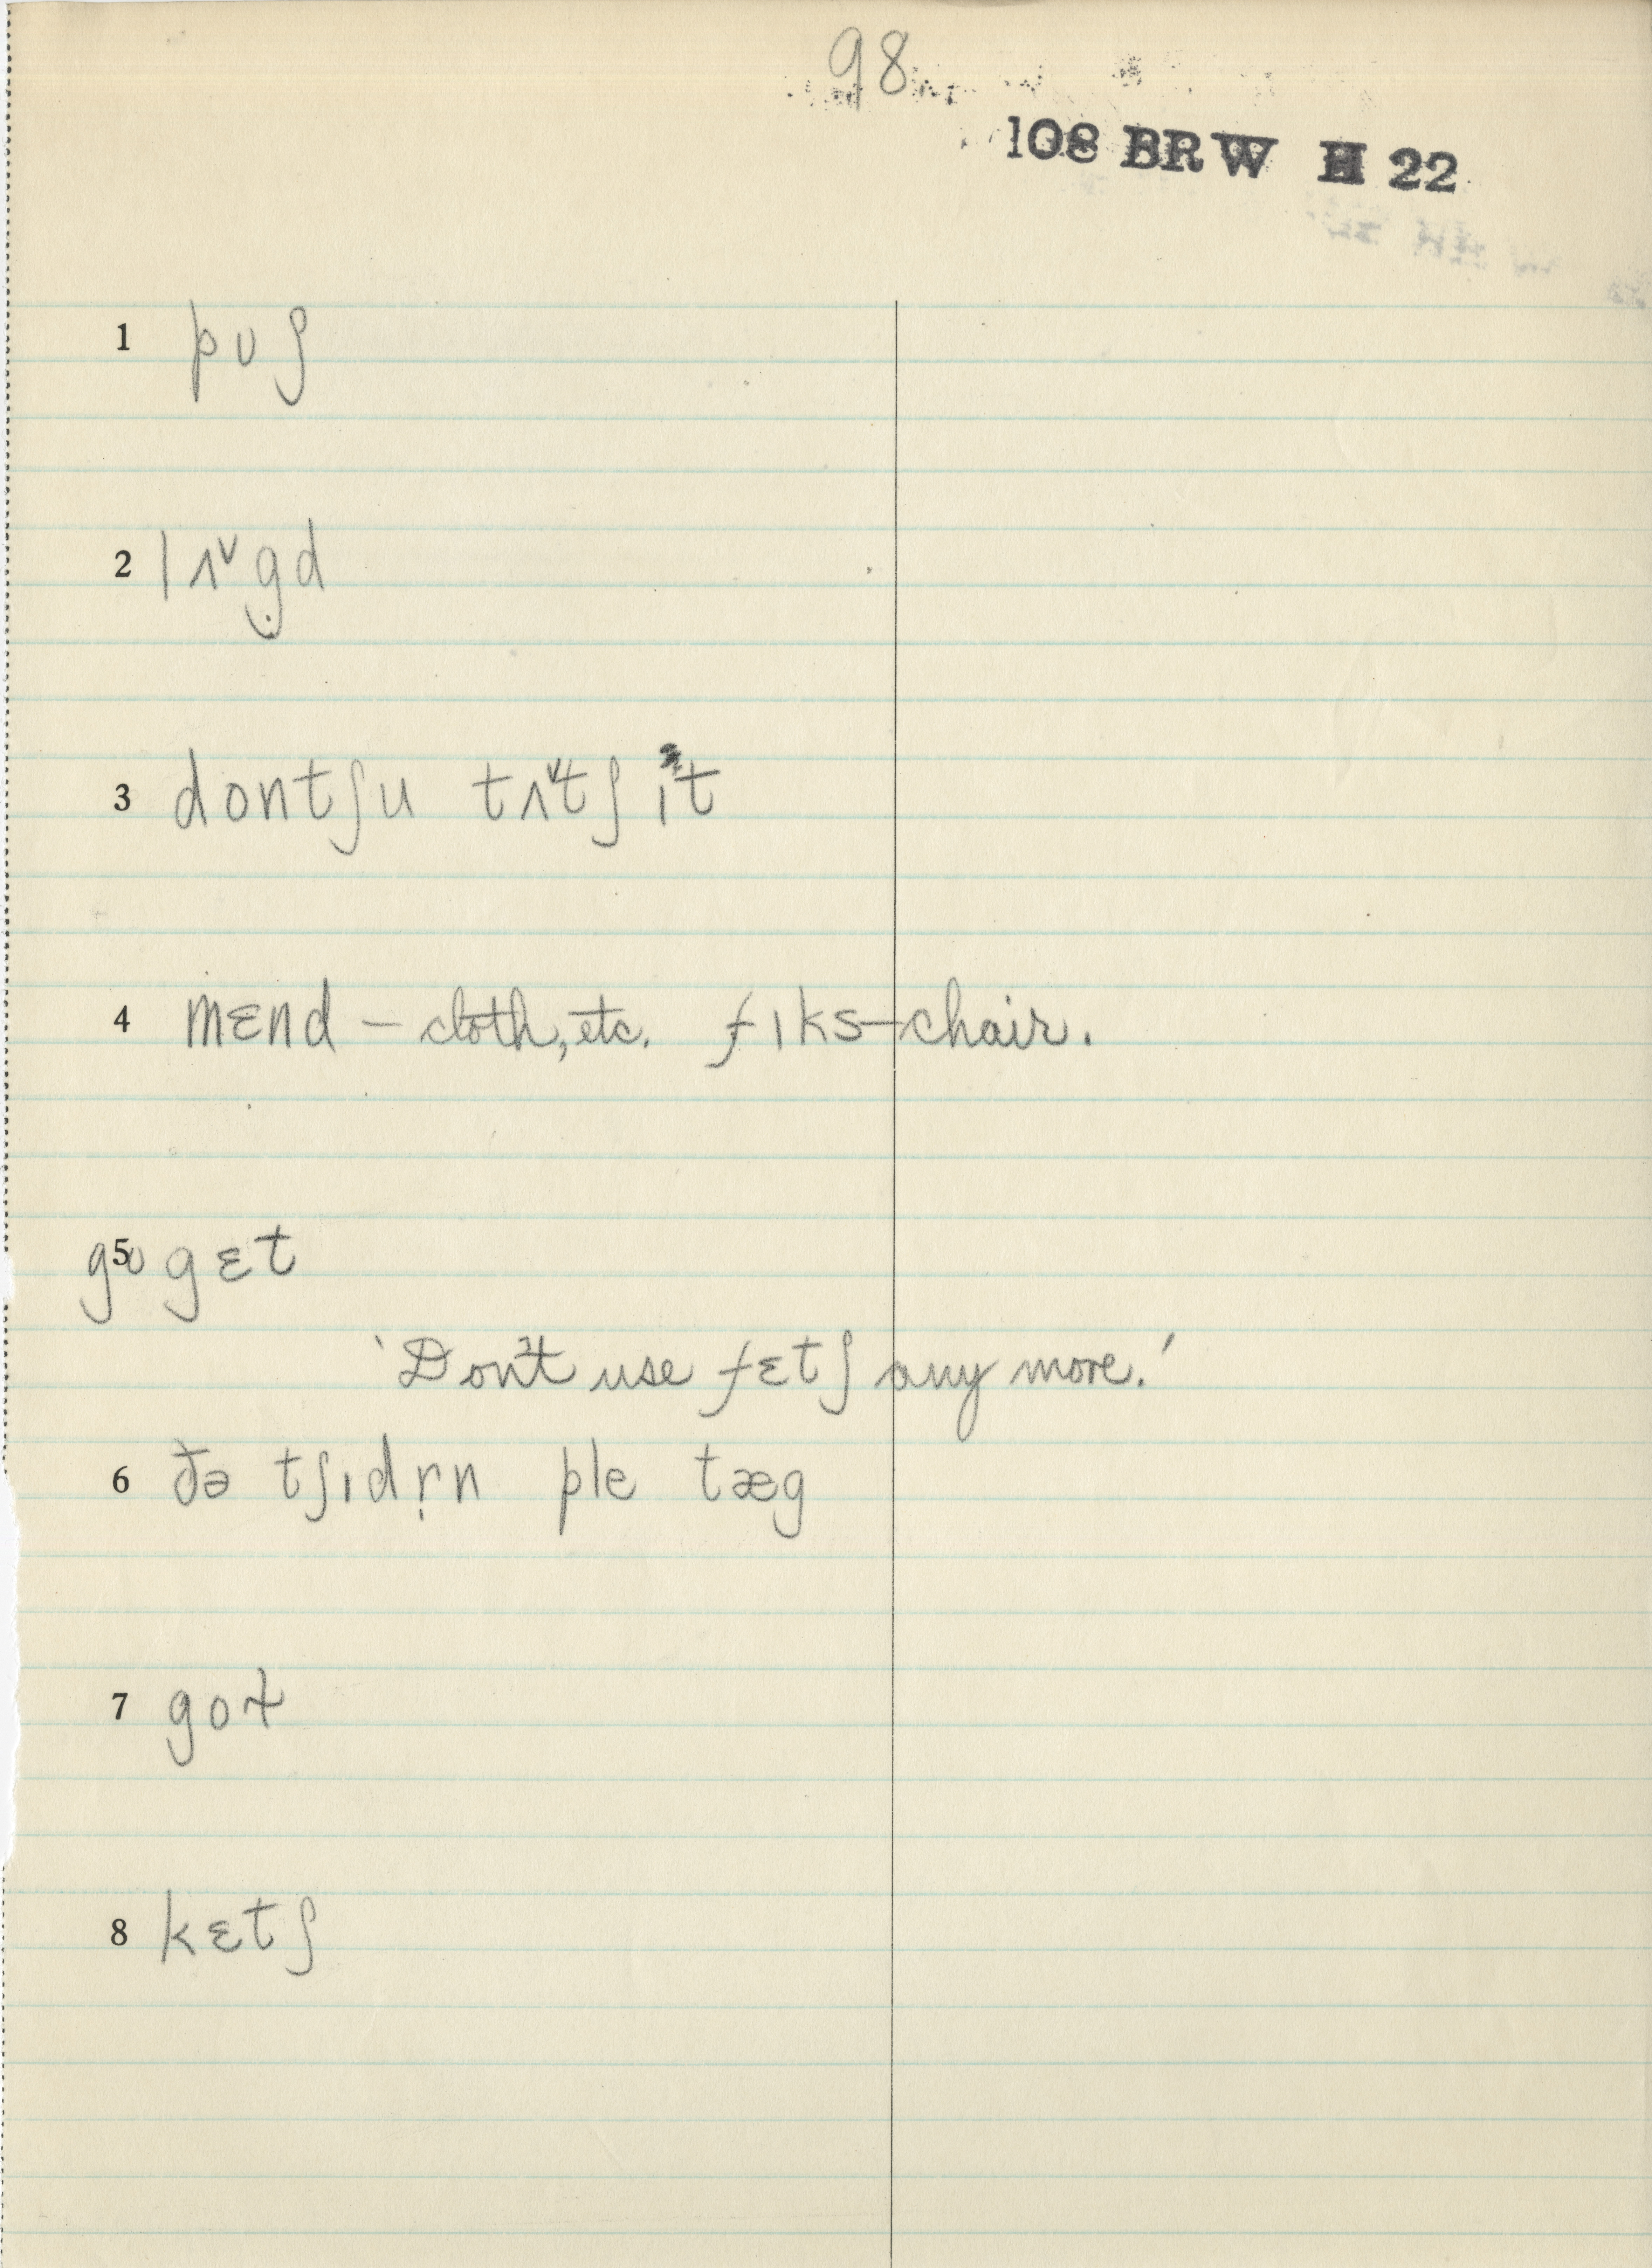 98
108 BRW H 22
1 pʊʃ
2 lʌ˅g̣d
3 dontʃu tʌ˅tʃ ɪt
4 mɛnd – cloth, etc. fɪks – chair.
5 gʊ gɛt
'Don't use fɛtʃ any more.'
6 ðə tʃɪdṛn ple tæg
7 got
8 kɛtʃ